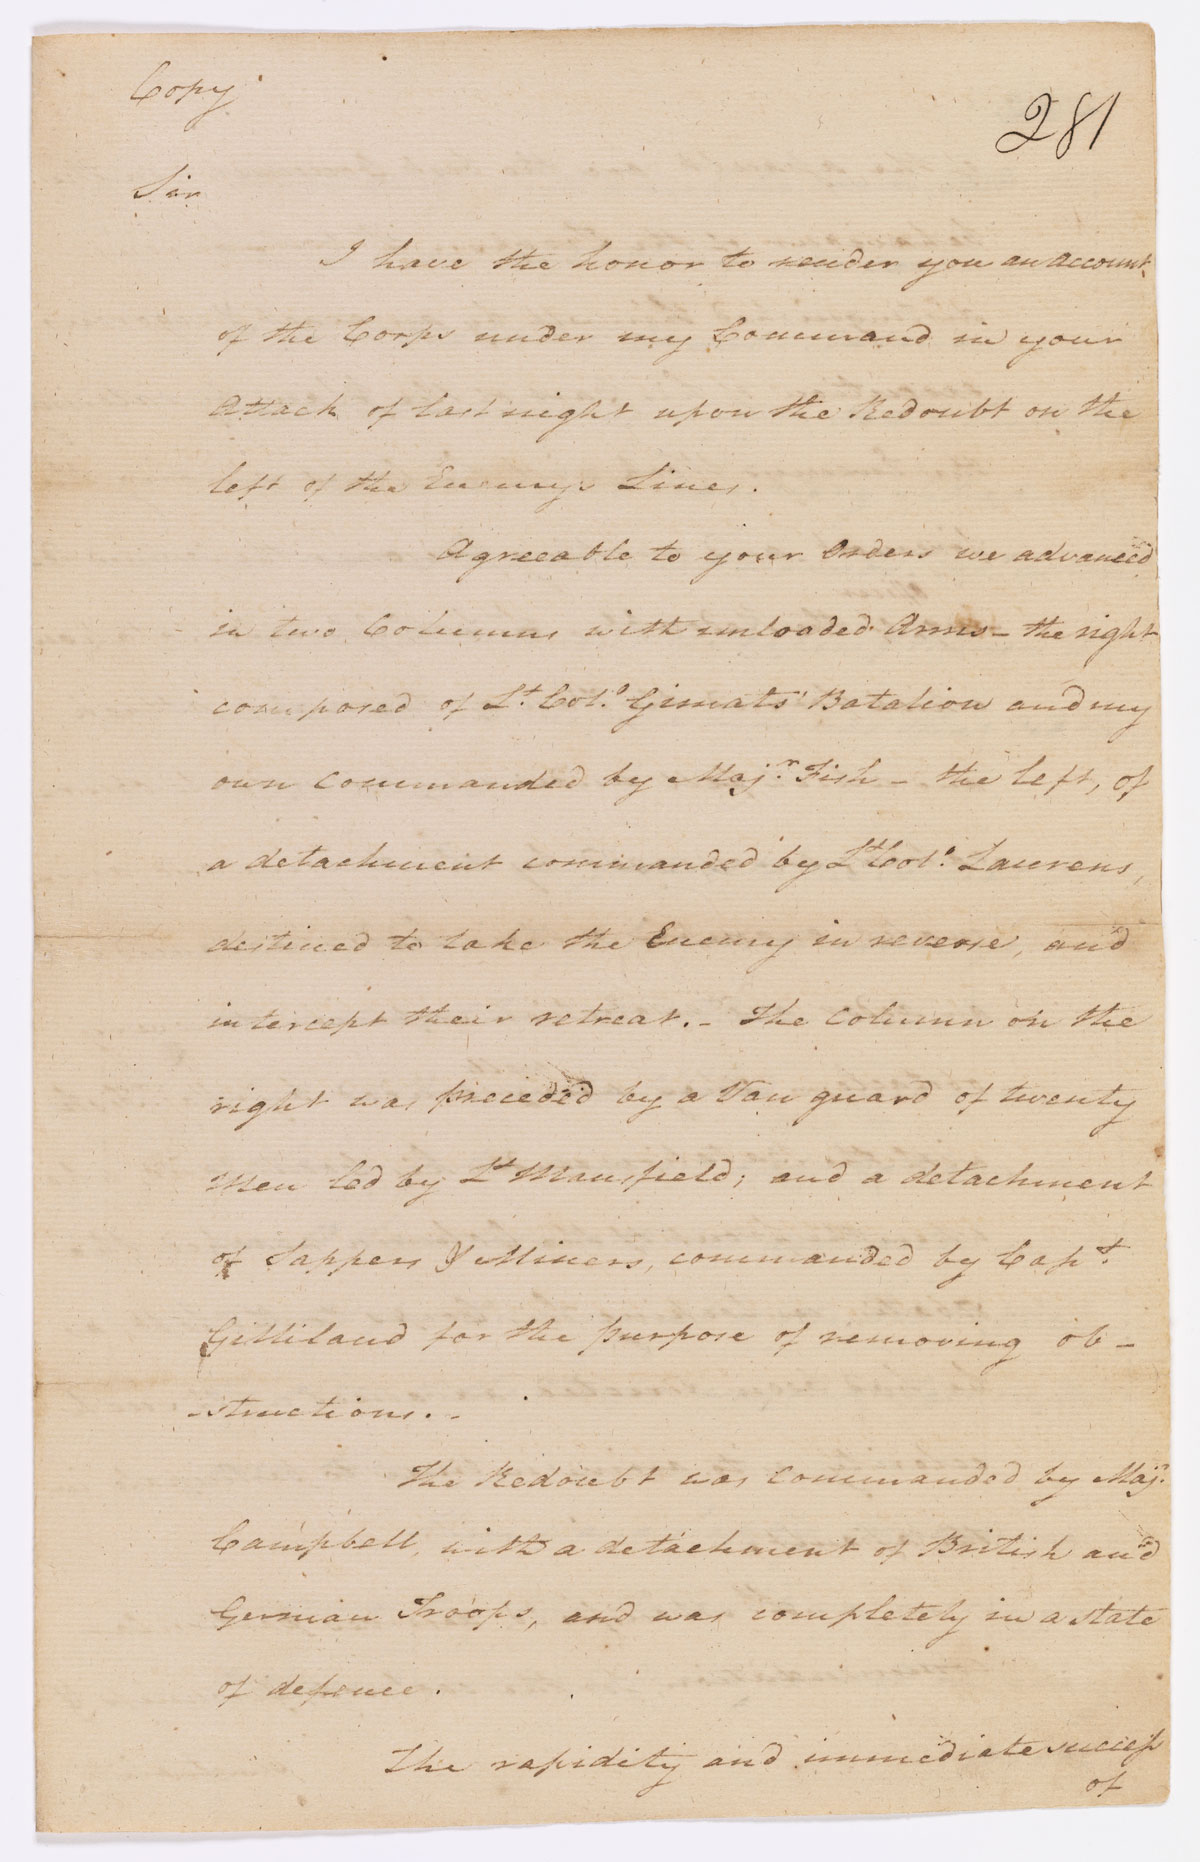 Copy
281
Sir
I have the honor to render you an account
of the Corps under my Command in your
Attack of last night upon the Redoubt on the
left of the Enemys Lines.
Agreeable to your Orders we advanced
in two Columns with unloaded Arms – the right
composed of Lt. Colo. Gimats' Batalion and my
own commanded by Majr. Fish – the left, of
a detachment commanded by Lt Colo. Laurens,
destined to take the Enemy in reverse, and
intercept their retreat. – The column on the
right was preceded by a Van guard of twenty
Men led by Lt Mansfield; and a detachment
of Sappers & Miners, commanded by Capt.
Gilliland for the purpose of removing ob-
-structions. –
The Redoubt was commanded by Majr.
Campbell, with a detachment of British and
German Troops, and was completely in a state
of defence.
The rapidity and immediate success
of